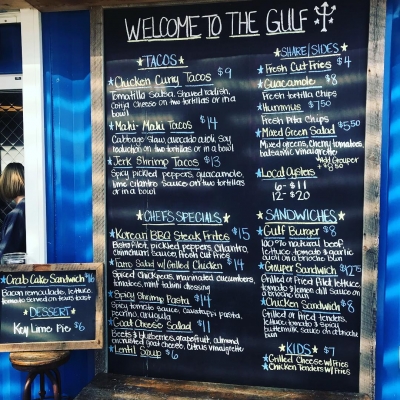 WELCOME TO THE GULF
TACOS
Chicken Curry Tacos $9
Tomatillo Salsa, shaved radish,
Cotija Cheese on two tortillas or in a
bowl
Mahi-Mahi Tacos $14
Cabbage slaw, avocado aioli, soy
reduction on two tortillas or in a bowl
Jerk Shrimp Tacos $13
Spicy pickled peppers, guacamole,
lime cilantro sauce on two tortillas
or in a bowl
CHEFS SPECIALS
Korean BBQ Steak Frites $15
Bistro Filet, pickled peppers, cilantro,
chimichurri sauce, Fresh cut Fries
Farro Salad w/ Grilled Chicken $14
Spiced chickpeas, marinated cucumbers,
tomatoes, mint tahini dressing
Spicy Shrimp Pasta $14
Spicy tomato sauce, pasta,
pecorino, arugula
Goat Cheese Salad $11
Beets & blueberries, grapefruit, almond
encrusted goat cheese, citrus vinaigrette
Lentil Soup $6
SHARE/SIDES
Fresh Cut Fries $4
Guacamole $8
Fresh tortilla chips
Hummus $7.50
Fresh Pita Chips
Mixed Green Salad $5.50
Mixed greens, cherry tomatoes,
balsamic vinaigrette
Add Grouper
+ $8.50
Local Oysters
6- $11
12- $20
SANDWICHES
Gulf Burger $8
100% natural beef,
lettuce tomato & garlic
aioli on a brioche bun
Grouper Sandwich $12.5
Grilled or Fried filet lettuce
tomato & lemon dill sauce on
a brioche bun
Chicken Sandwich $8
Grilled or fried tenders,
lettuce tomato & spicy
buttermilk sauce on a
brioche bun
KIDS $7
Grilled Cheese w/ Fries
Chicken Tenders w/ Fries
Crab Cake Sandwich $16
Bacon remoulade, lettuce,
tomato served on Texas toast
DESSERT
Key Lime Pie $6